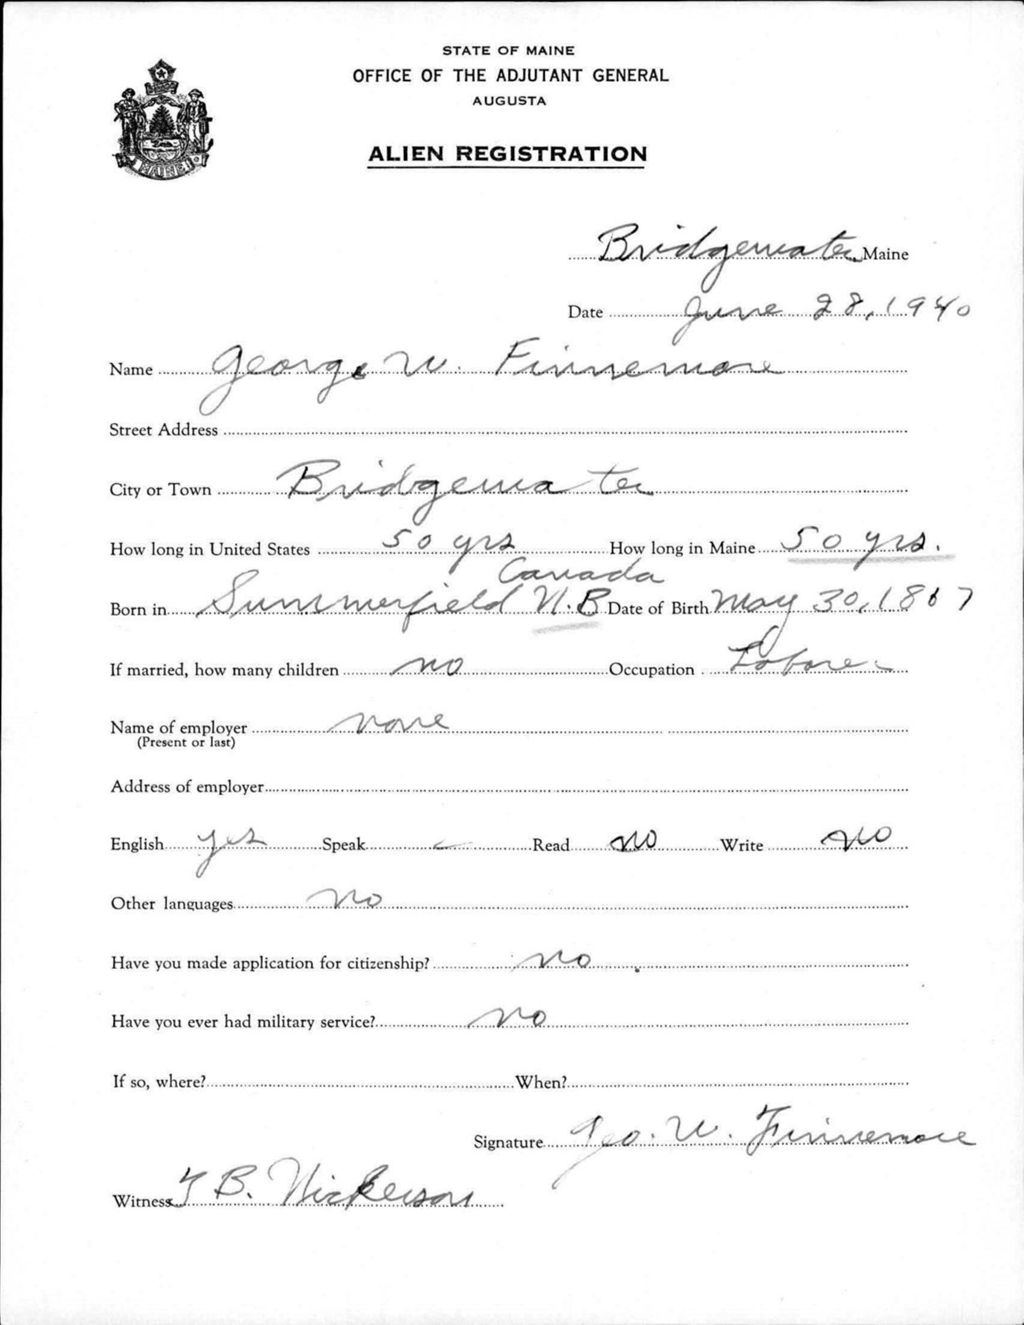 STATE OF MAINE
OFFICE OF THE ADJUTANT GENERAL
AUGUSTA
ALIEN REGISTRATION
Bridgewater, Maine
Date June 28, 1940
Name George W. Finnemore
Street Address
City or Town Bridgewater
How long in United States 50 yrs How long in Maine 50 yrs.
Canada
Born in Summerfield N.B. Date of Birth May 30, 1867
If married, how many children no Occupation Laborer
Name of employer none
(Present or last)
Address of employer
English yes Speak Read no Write no
Other languages no
Have you made application for citizenship? no
Have you ever had military service? no
If so, where? When?
Signature Geo. W. Finnemore
Witness B. Nickerson